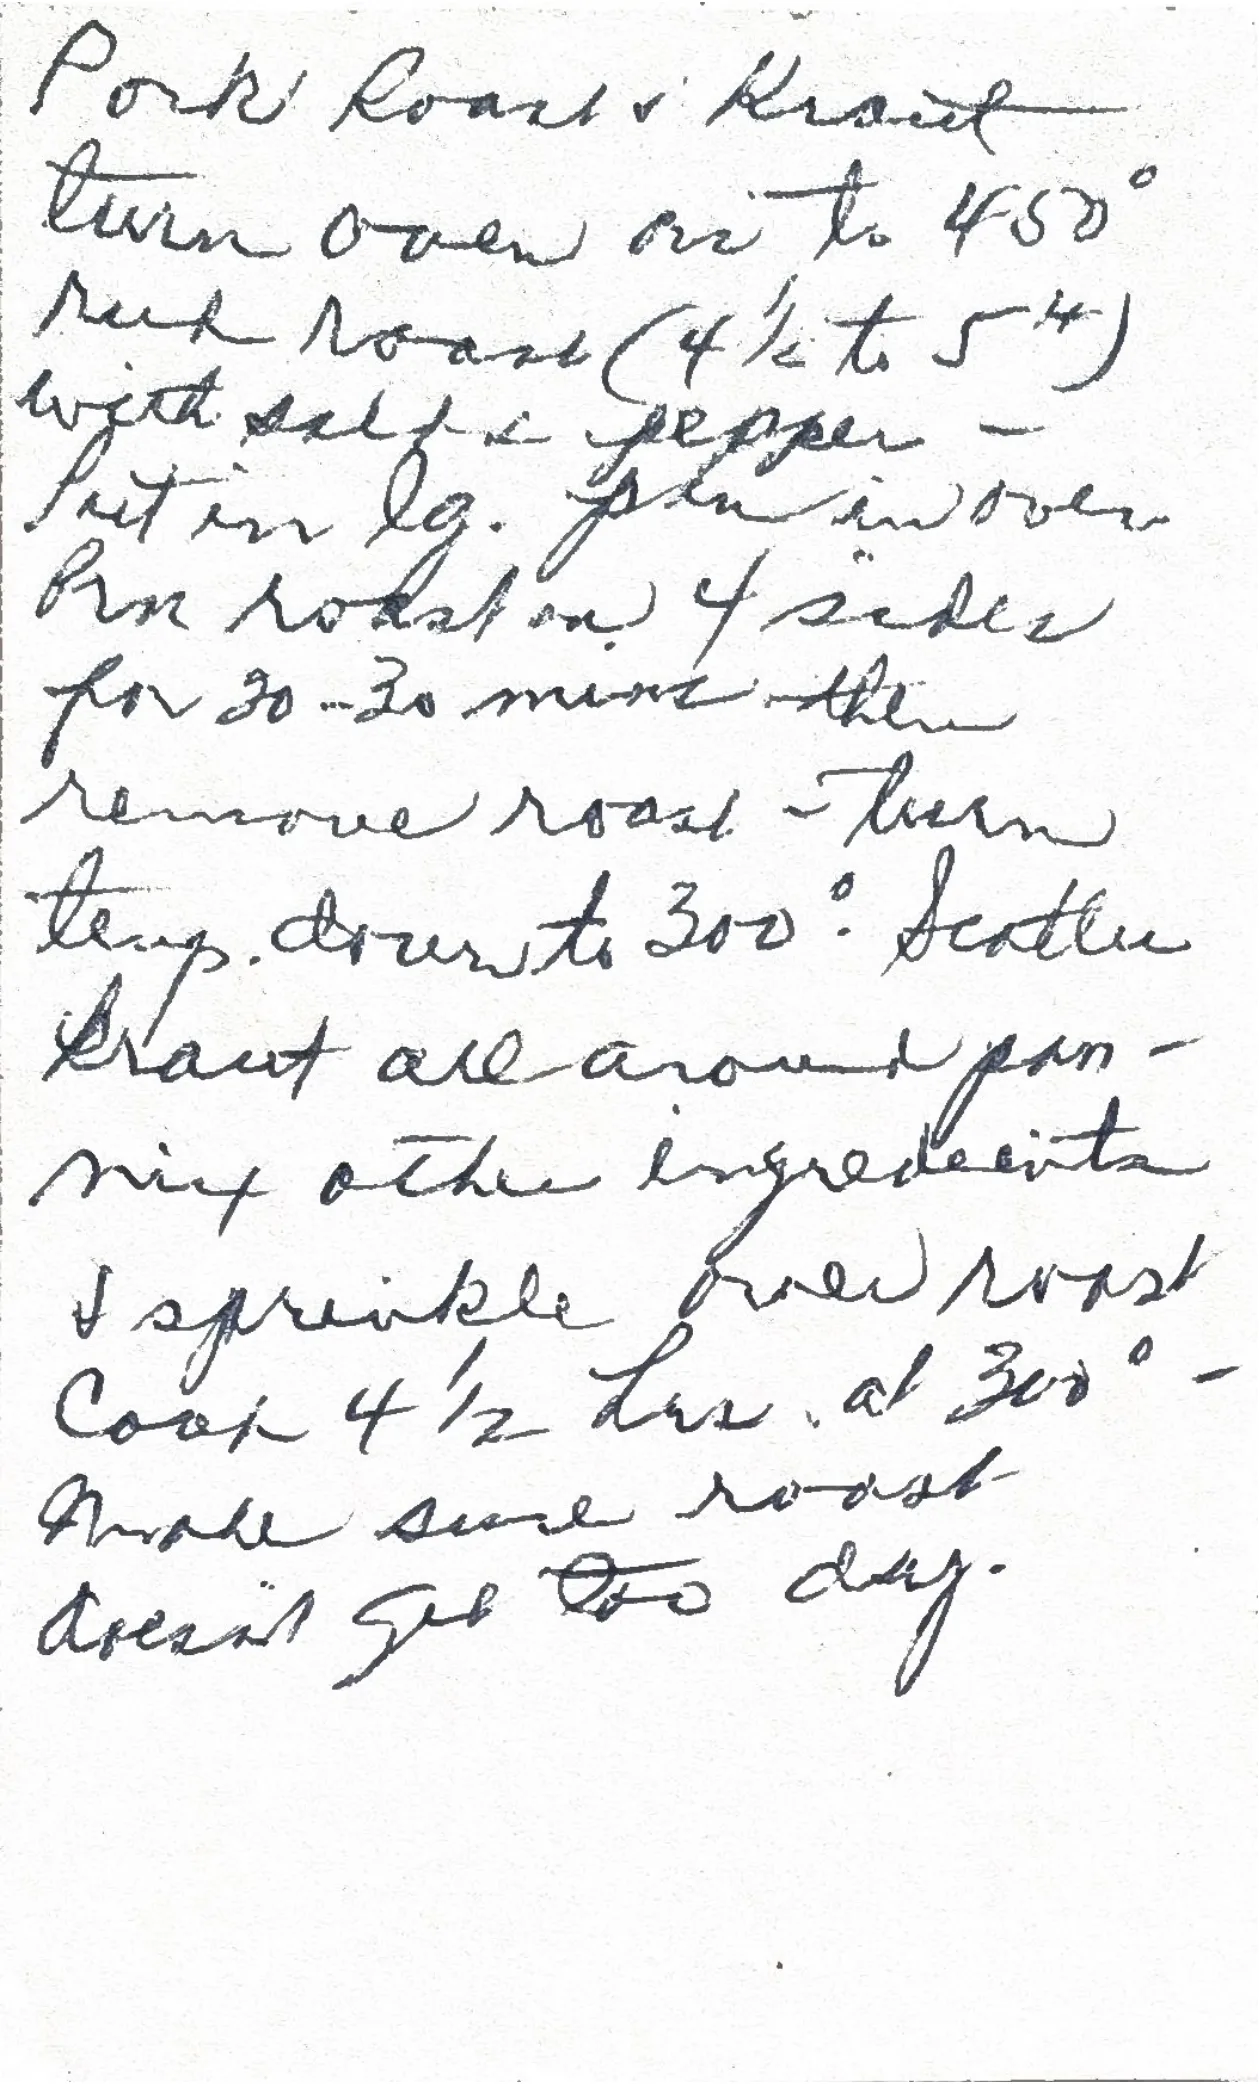 Pork Roast & Kraut
turn oven on to 450°
rub roast (4 1/2 to 5#)
with salt & pepper -
Put in lg. pan in oven
Brn roast on 4 sides
for 20-30 mins then
remove roast - turn
temp. down to 300°. Scatter
kraut all around pan -
mix other ingredients
& sprinkle over roast
Cook 4 1/2 hrs. at 300° -
Make sure roast
doesn't get too dry.